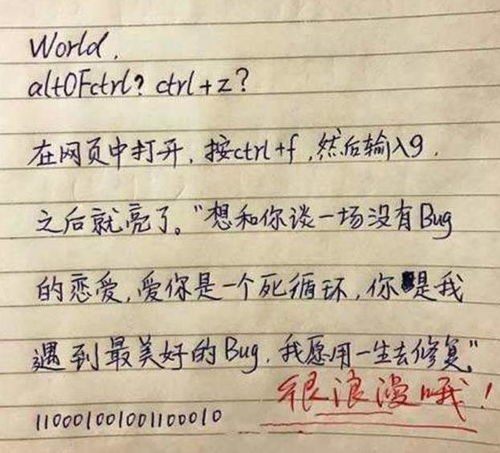 World.
altOFctrl? ctrl+z?
在网页中打开,按ctrl+f,然后输入9.
之后就亮了。"想和你谈一场没有Bug
的恋爱,爱你是一个死循环,你是我
遇到最美好的Bug,我愿用一生去修复"
很浪漫哦!
110001001001100010